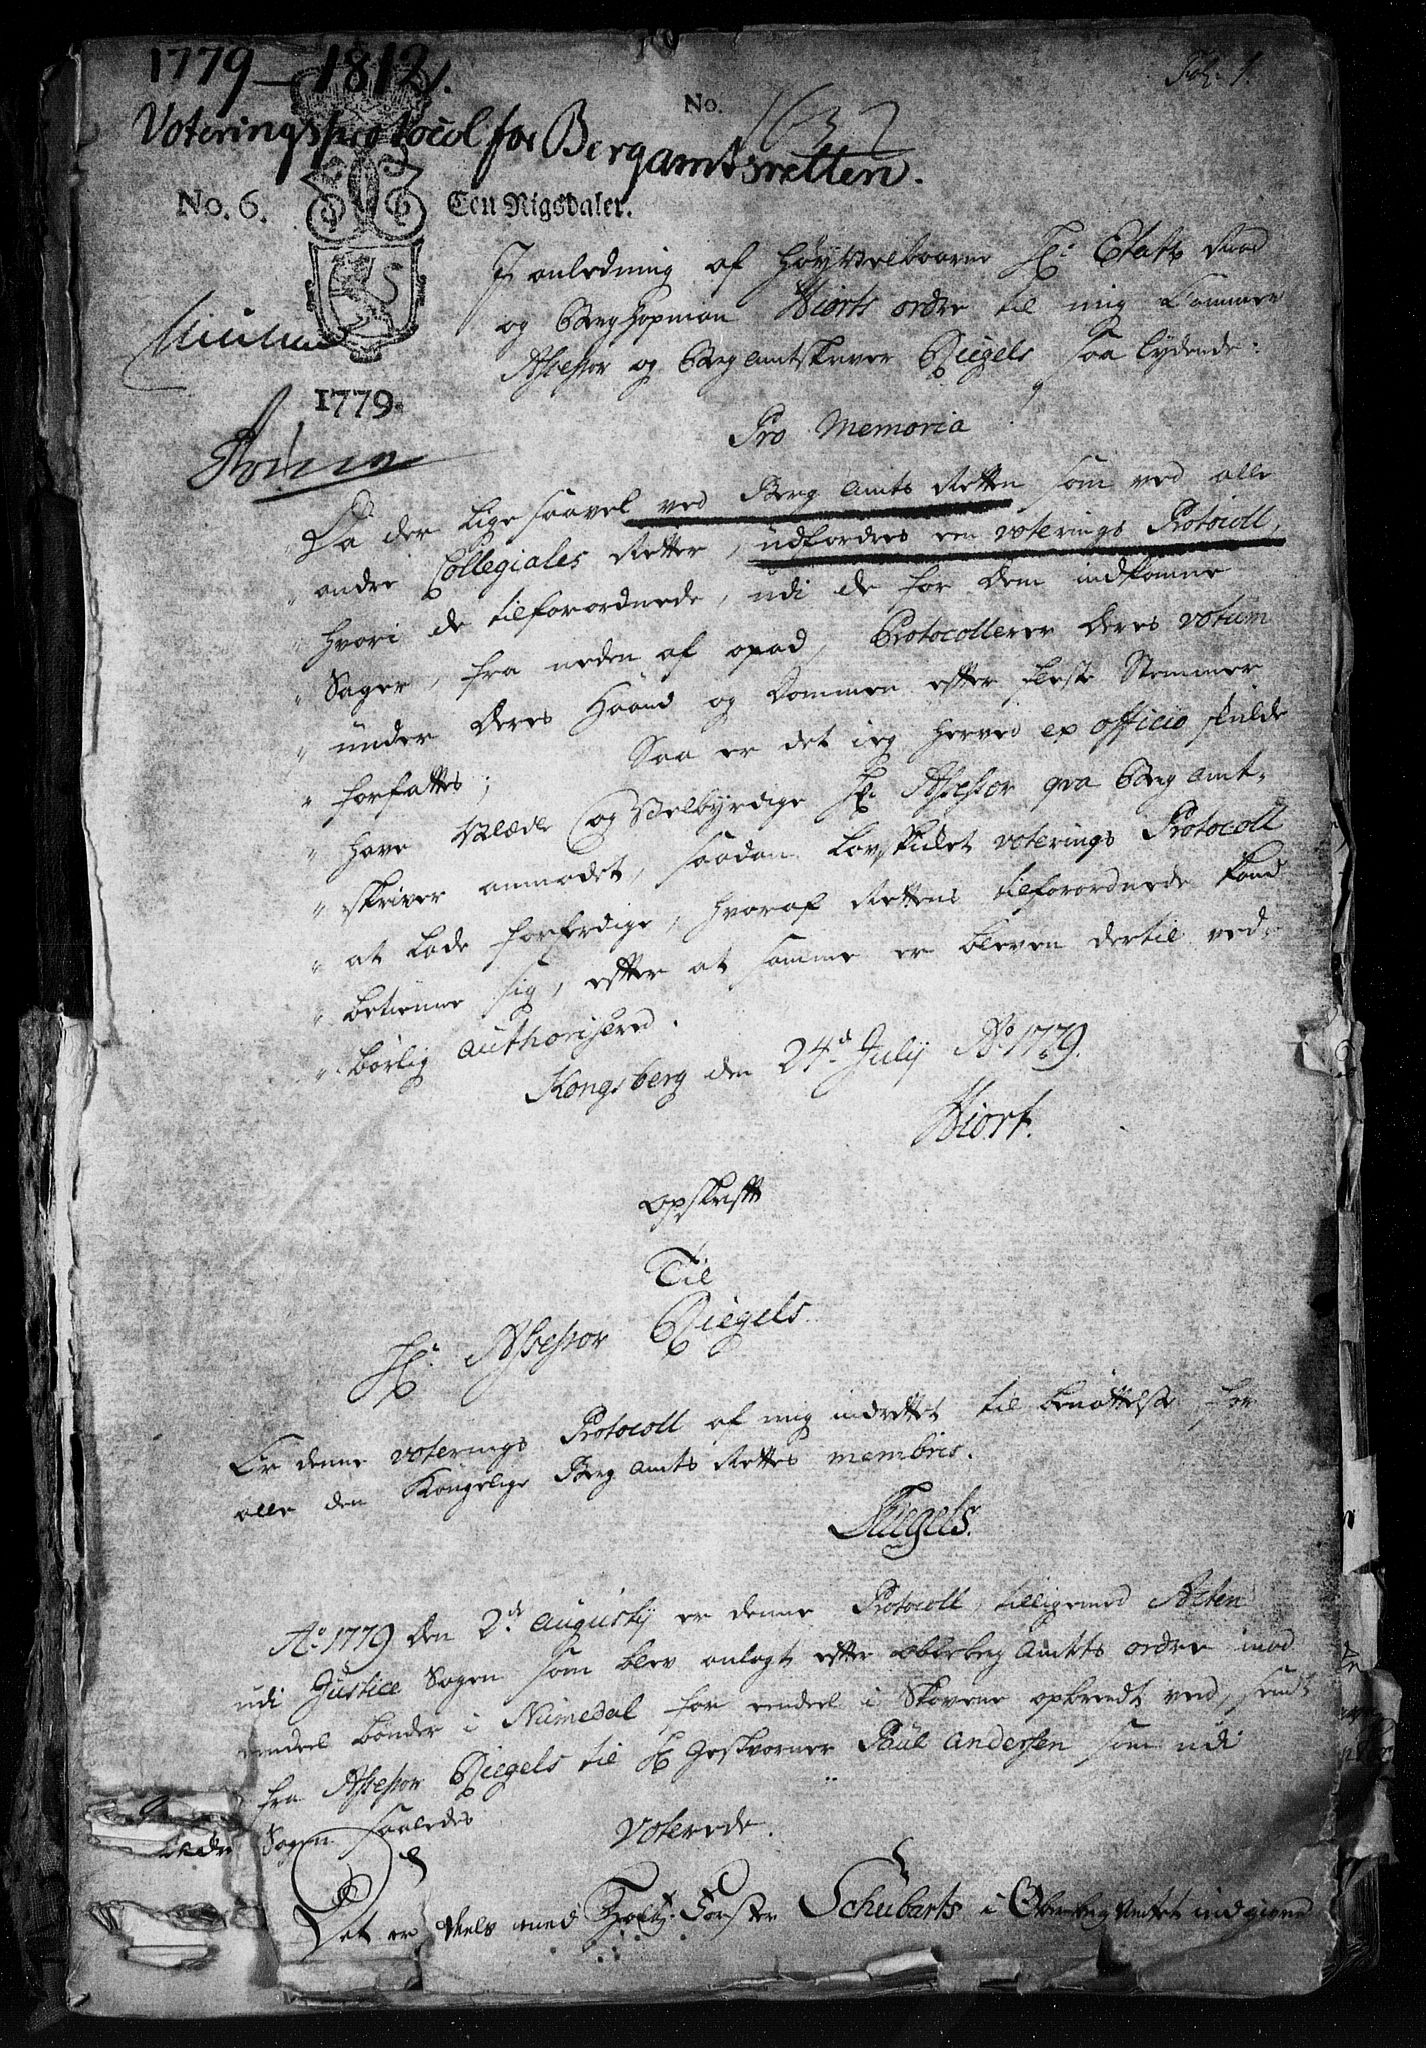 1779 – 1812.
Fol. 1.
No.
Voteringsprotocol for Bergamtsretten.
No. 6. Een Rigsdaler.
1779.
I anledning af HøyVelbaarne Hr. Etats Raad
og Berghopman Hiorts ordre til mig Cammer
Assessor og Bergamtskriver Riegels saa lydende:
Pro Memoria
Da der lige saavel ved Berg Amts Retten som ved alle
andre Collegiales Retter, udfordres een voterings Protocoll,
hvori de tilforordnede, udi de for dem indkomne
Sager, fra neden af opad, Protocollerer deres votum
under deres Haand og Dommen efter fleste Stemmer
forfattes; Saa er det ieg herved ex officio skulde
have Velædle og Velbyrdige Hr. Assessor qva Berg Amt-
skriver anmodet, saadan Lovskikket voterings Protocoll
at lade forferdige, hvoraf Rettens tilforordnede kand
betienne sig, efter at samme er bleven dertil ved-
børlig authorisered.
Kongsberg den 24d July Ao 1779.
Hiort.
Opskrift
Til
Hr. Assessor Riegels.
Er denne voterings Protocoll af mig indrettet til benøttelse for
alle den Kongelige Berg Amts Rettes membris.
Riegels.
Ao 1779 den 2d Augusty er denne Protocoll, tilligemed Acten
udi Justice Sagen som blev anlagt efter OberbergAmtets ordre imod
eendeel bønder i Numedal for eendeel i Skovene opbrendt ved, sendt
fra Assessor Riegels til Hr Geskvorner Paul Andersen som udi
Sagen saaledes
Voterede.
Det er deels med Holtz-Förster Schubarts i Oberberg Amtet indgivne